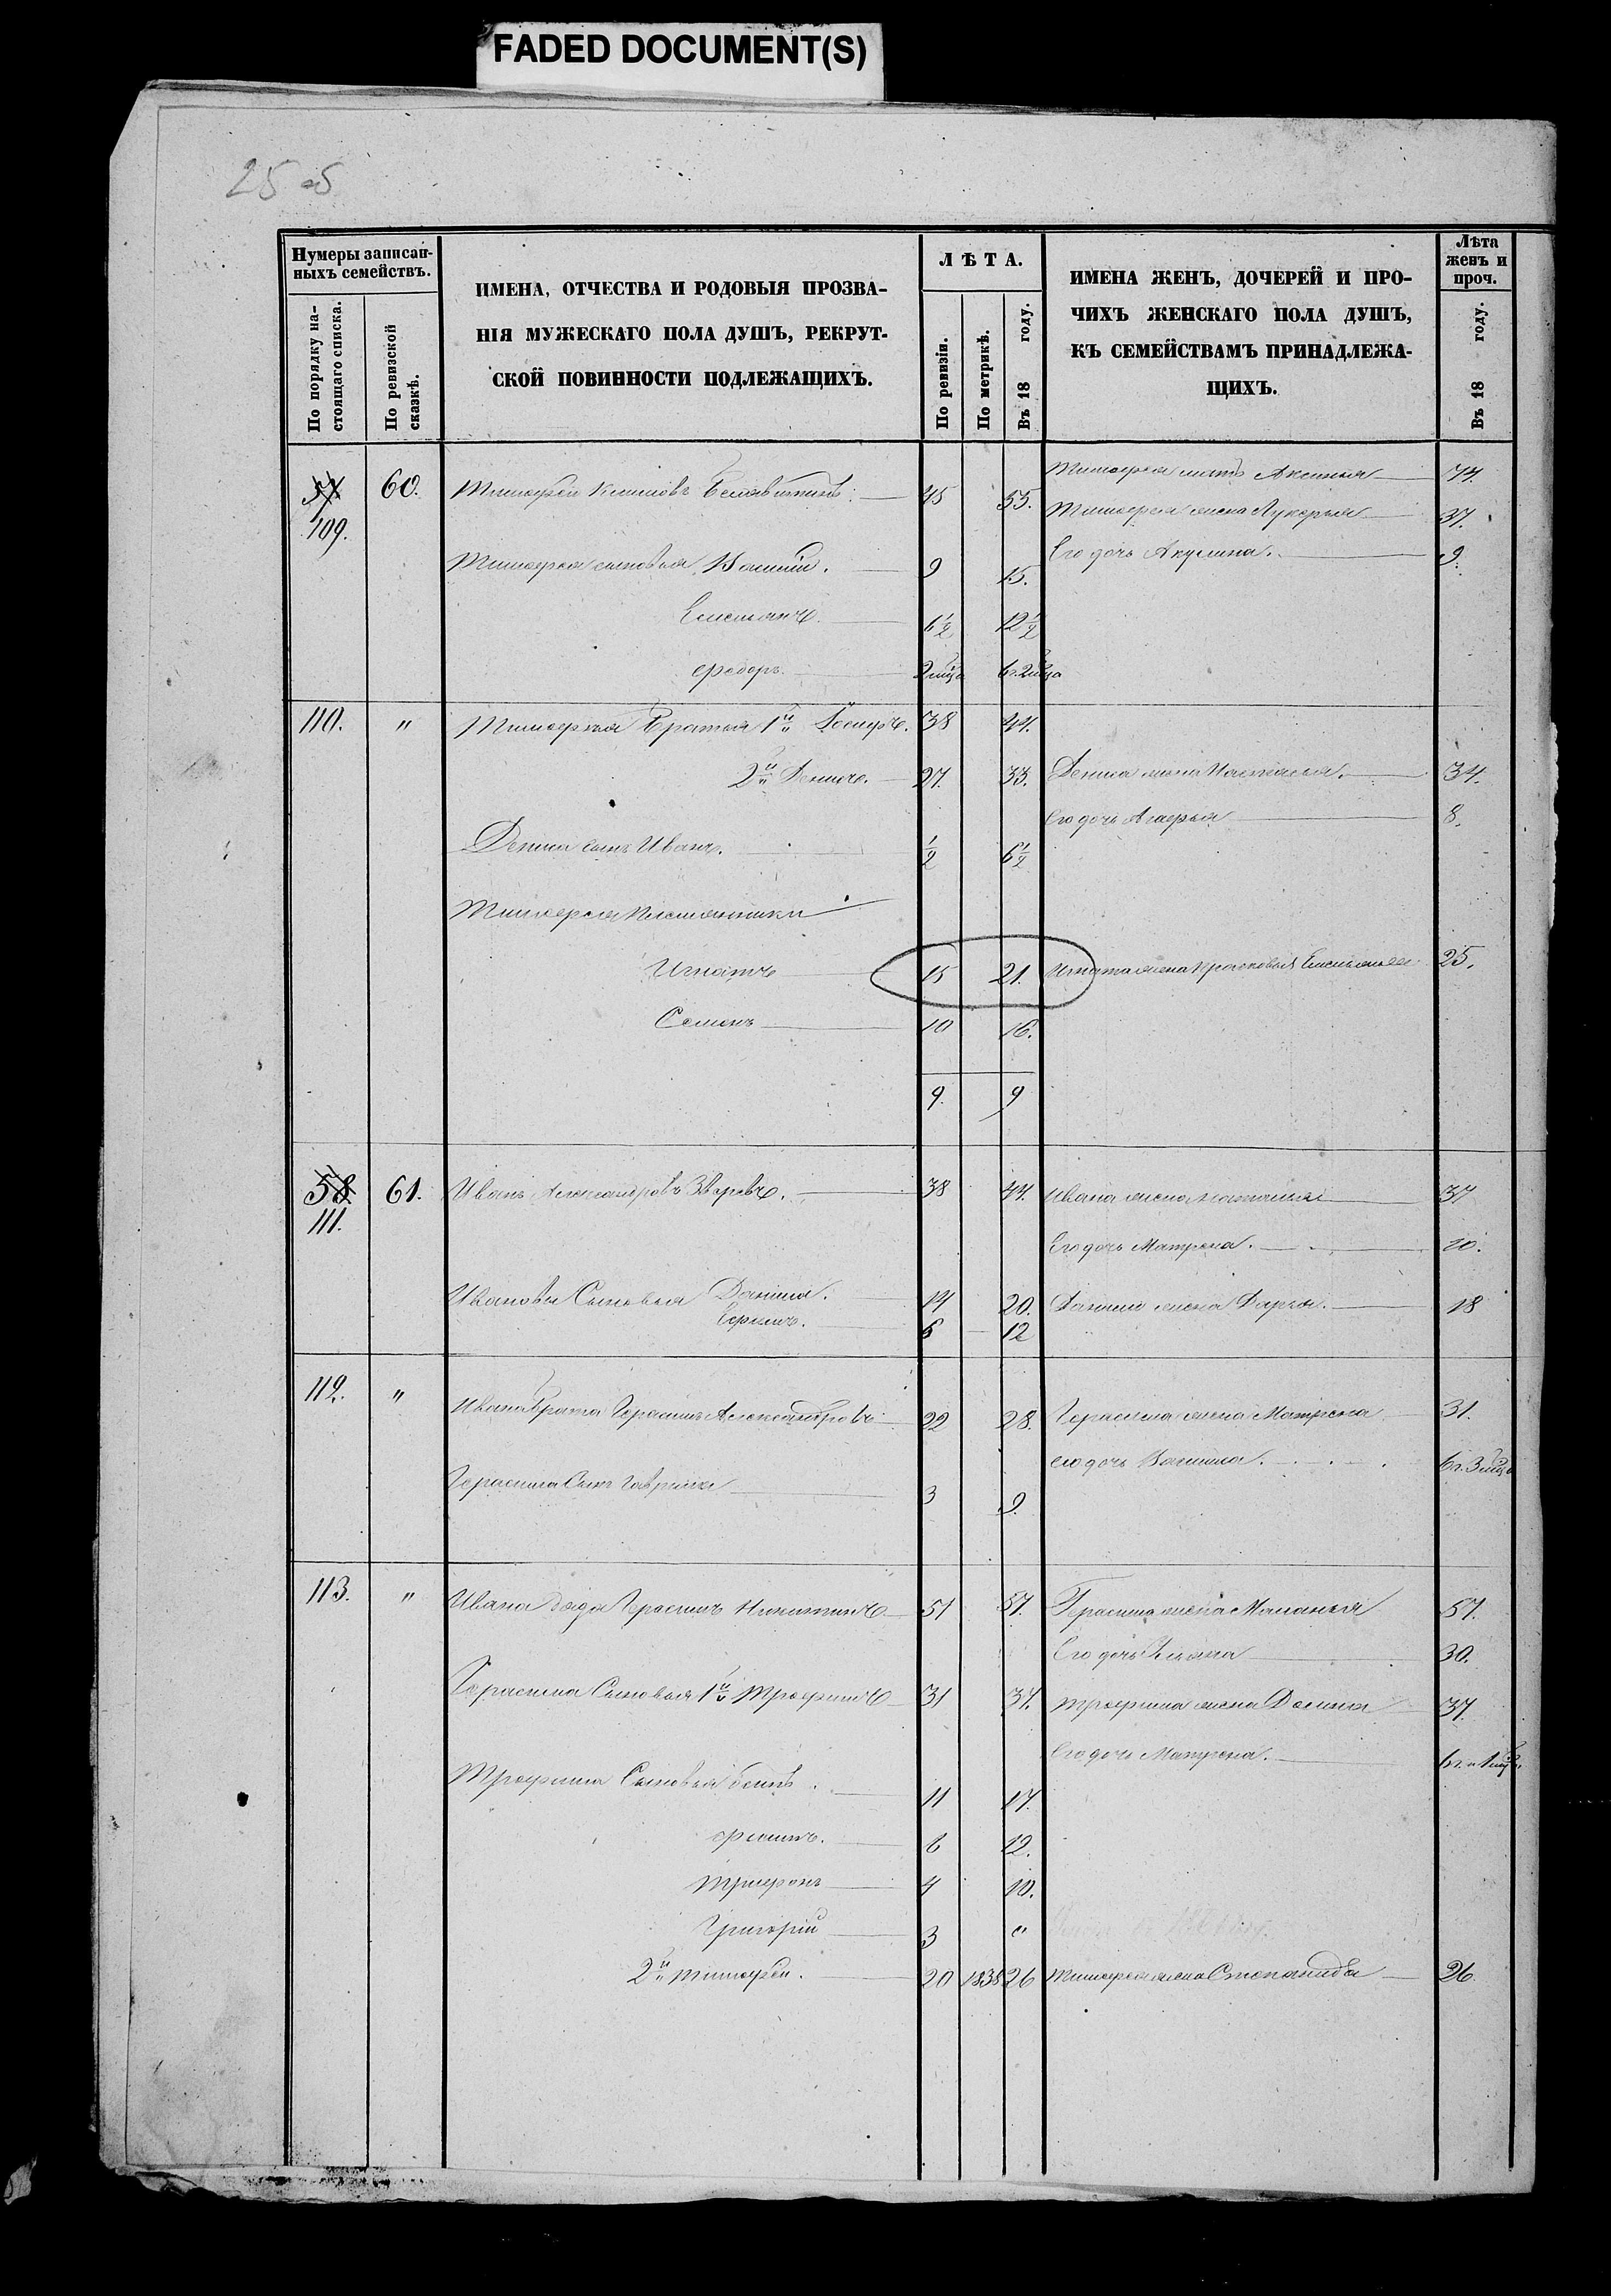 FADED DOCUMENT(S)
25 об
Нумеры записан-
ныхъ семействъ.
По порядку на-
стоящаго списка.
По ревизской
сказкѣ.
ИМЕНА, ОТЧЕСТВА И РОДОВЫЯ ПРОЗВА-
НІЯ МУЖЕСКАГО ПОЛА ДУШЪ, РЕКРУТ-
СКОЙ ПОВИННОСТИ ПОДЛЕЖАЩИХЪ.
ЛѢТА.
По ревизіи.
По метрикѣ.
Въ 18 году.
ИМЕНА ЖЕНЪ, ДОЧЕРЕЙ И ПРО-
ЧИХЪ ЖЕНСКАГО ПОЛА ДУШЪ,
КЪ СЕМЕЙСТВАМЪ ПРИНАДЛЕЖА-
ЩИХЪ.
Лѣта
женъ и
проч.
Въ 18 году.
57 60. Тимофей 45 53. Тимофея мать Аксинья 74.
109. Тимофея жена Лукерья 37.
Тимофея сыновья 9 15. Его дочь Акулина. 9.
Емельянъ 6½ 12½
Федоръ 2 мѣца 6 г. 2 мѣца
110. " Тимофея братья 1й 38 44.
2й Денисъ. 27. 33. Дениса жена Настасья. 34.
Его дочь Агафья 8.
Дениса сынъ Иванъ. ½ 6½
Тимофея племянники
Игнатъ 15 21. Игната жена Прасковья 25.
Семенъ 10 16.
9. 9
58. 61. Иванъ Александровъ Зверевъ. 38 44. Ивана жена Наталья 37
111. Его дочь Матрена. 10.
Ивановы Сыновья Данила. 14 20. Данилы жена Дарья. 18
Ефимъ. 6 12
112. " Ивана братъ Герасимъ Александровъ 22 28. Герасима жена Матрена 31.
его дочь Василиса. 6 г. 3 мѣца
Герасима Сынъ Гаврила 3 9.
113. " Ивана дядя Герасимъ Никитинъ 51 57. Герасима жена Маланья 57.
Его дочь 30.
Герасима Сыновья 1й Трофимъ 31 37. Трофима жена Домна 37.
Его дочь Матрена.
Трофима Сыновья 11 17.
6 12.
Трифонъ 4 10.
Григорій 3 "
2й Тимофей. 20 1838 26 Тимофея жена Степанида 26.